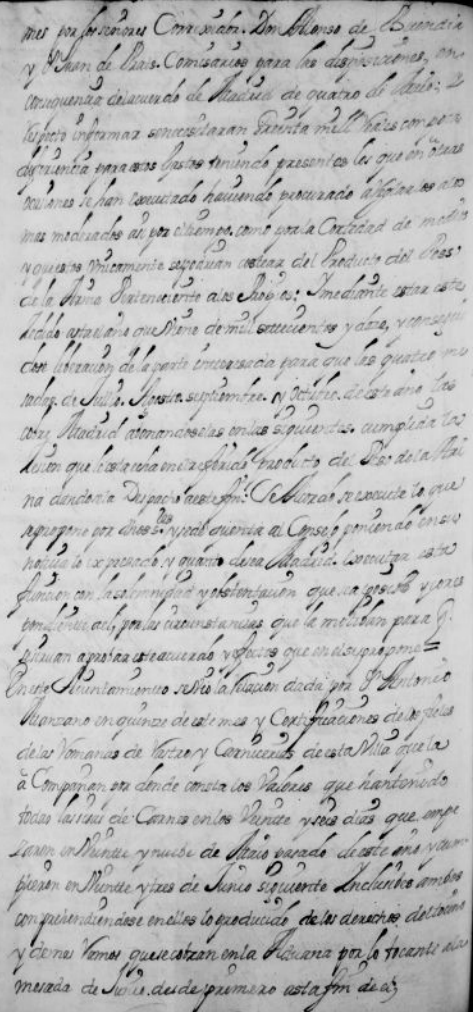 mes por los señores Correxidor. Don Alonso de Buendia
y Dn Juan de Prais. Comisarios para las disposiciones, en
consequenzia del acuerdo de Madrid de quatro de Maio;
respecto informar se necesitaran treinta mill reales con poca
diferiencia para estos gastos teniendo presentes los que en otras
ocasiones se han executado haviendo procurado
mas moderados asi por como por la Cortedad de medios
y que estos unicamente se podran costear del Producto del Peso
de la Arina Perteneciente a los Propios: Y mediante estar este
zedido asta el año que viene de mill setecientos y doze, y
de la parte para que las quatro me
sadas de Julio. Agosto. septiembre. y Octubre. de este año las
Madrid en las siguientes. cumplida la
zesion que le esta echa en el referido Producto del Peso de la Ari
na dandola Despacho a este fin: Se Acordo se execute lo que
se propone por dhos ss.res y se de quenta al Consejo poniendo en su
noticia lo expresado y quanto desea Madrid executar esta
funcion con la solemnidad y obstentacion que
por las circunstancias que la para q.
se sirvan aprobar este acuerdo y efectos que en el se propone=
En este Ayuntamiento se vio la relacion dada por Dn Antonio
Manzano en quinze de este mes y Certificaciones de los fieles
de las Romanas de Rastro y Carnicerias de esta Villa que la
acompañan por donde consta los Valores que han tenido
todas las sisas de Carnes en los Veinte y seis dias que empe
zaron en Veinte y nuebe de Maio pasado de este año y cum
plieron en Veinte y tres de Junio siguiente Inclusibe ambos
comprehendiendose en ellos lo producido de los derechos del tocino
y demas ramos que se cobran en la Aduana por lo tocante a la
mesada de Junio. desde primero asta fin de el;